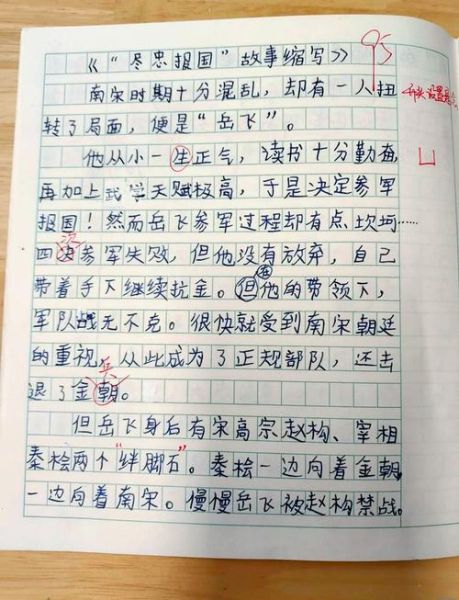 《“尽忠报国”故事缩写》 95
南宋时期十分混乱，却有一人扭
转了局面，便是“岳飞”。
他从小一生正气，读书十分勤奋，
再加上武学天赋极高，于是决定参军
报国！然而岳飞参军过程却有点坎坷……
次
四决参军失败，但他没有放弃，自己
带着手下继续抗金。但在他的带领下，
军队战无不克。很快就受到南宋朝廷
的重视，从此成为了正规部队，还击
兵
退了金朝。
但岳飞身后有宋高宗赵构、宰相
秦桧两个“绊脚石”。秦桧一边向着金朝，
一边向着南宋。慢慢岳飞被赵构禁战。
开头设置悬念